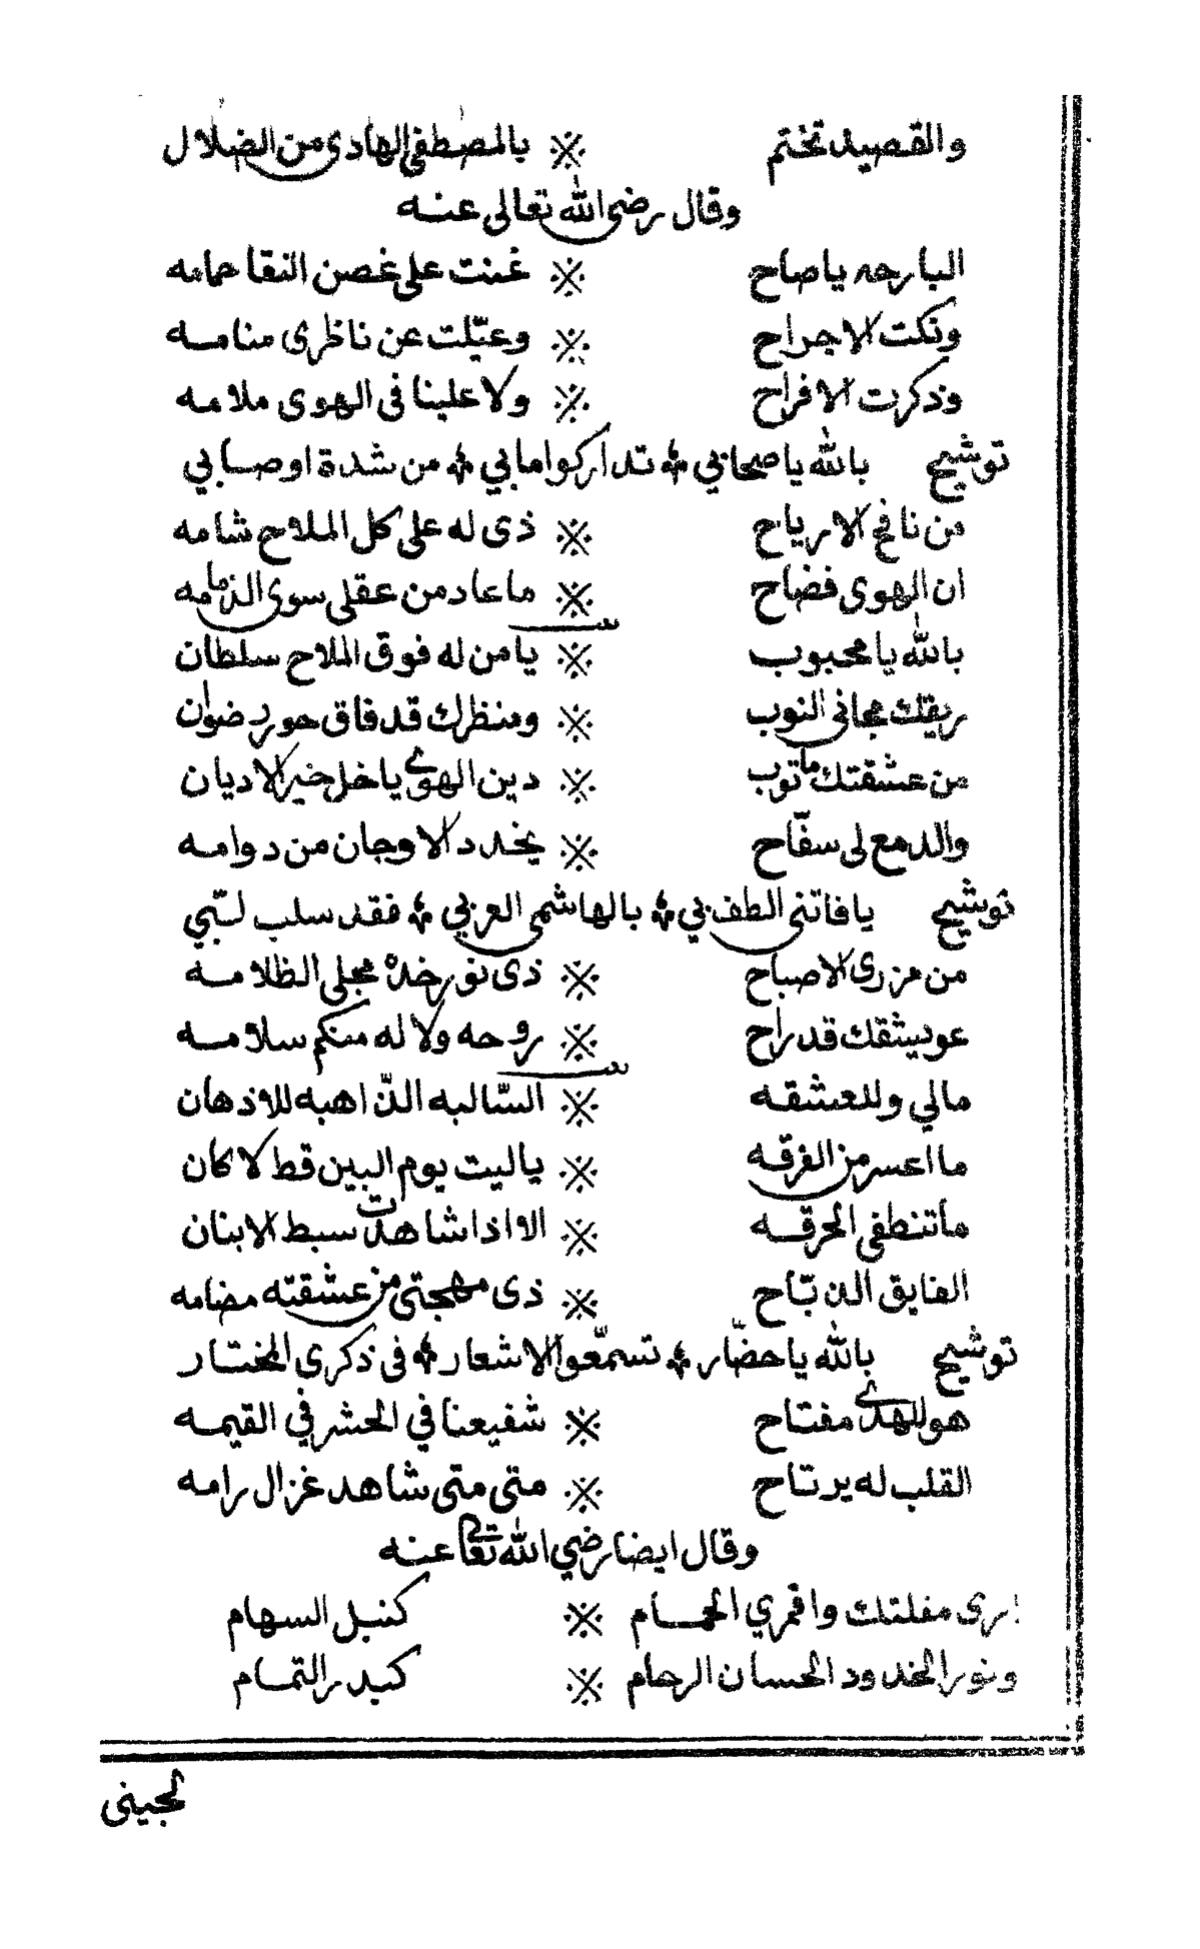 والقصيد تختم ※ بالمصطفى الهادى من الضلال
وقال رضى الله تعالى عنه
البارحه ياصاح ※ غنت على غصن النقا حمامه
ونكت الاجراح ※ وعيّلت عن ناظرى منامه
وذكرت الافراح ※ ولا علينا فى الهوى ملامه
توشيح بالله ياصحابي ※ تداركوا مابي ※ من شدة اوصابي
من نافح الارياح ※ ذى له على كل الملاح شامه
ان الهوى فضاح ※ ماعاد من عقلى سوى الذمامه
بالله يا محبوب ※ يامن له فوق الملاح سلطان
ريقك مجانى النوب ※ ومنظرك قد فاق حور رضوان
من عشقتك ماتوب ※ دين الهوى ياخل خير الاديان
والدمع لى سفّاح ※ يخدد الاوجان من دوامه
توشيح يافاتنى الطف بي ※ بالهاشمى العربي ※ فقد سلب لبّي
من مزرى الاصباح ※ ذى نور خده مجلى الظلامه
عويشقك قد راح ※ روحه ولا له منكم سلامه
مالي وللعشقه ※ السّالبه الذّاهبه للاذهان
ما اعسر من الفرقه ※ ياليت يوم البين قط لا كان
ماتنطفى الحرقه ※ الا اذا شاهدت سبط الابنان
الفايق الذبّاح ※ ذى مهجتى من عشقته مضامه
توشيح بالله ياحضّار ※ تسمّعوا الاشعار ※ فى ذكرى المختار
هو للهدى مفتاح ※ شفيعنا في الحشر في القيمه
القلب له يرتاح ※ متى متى شاهد غزال رامه
وقال ايضا رضي الله تعالى عنه
ارى مقلتك واقمري الحمام ※ كنبل السهام
ونور الخدود الحسان الرحام ※ كبدر التمام
لجينى